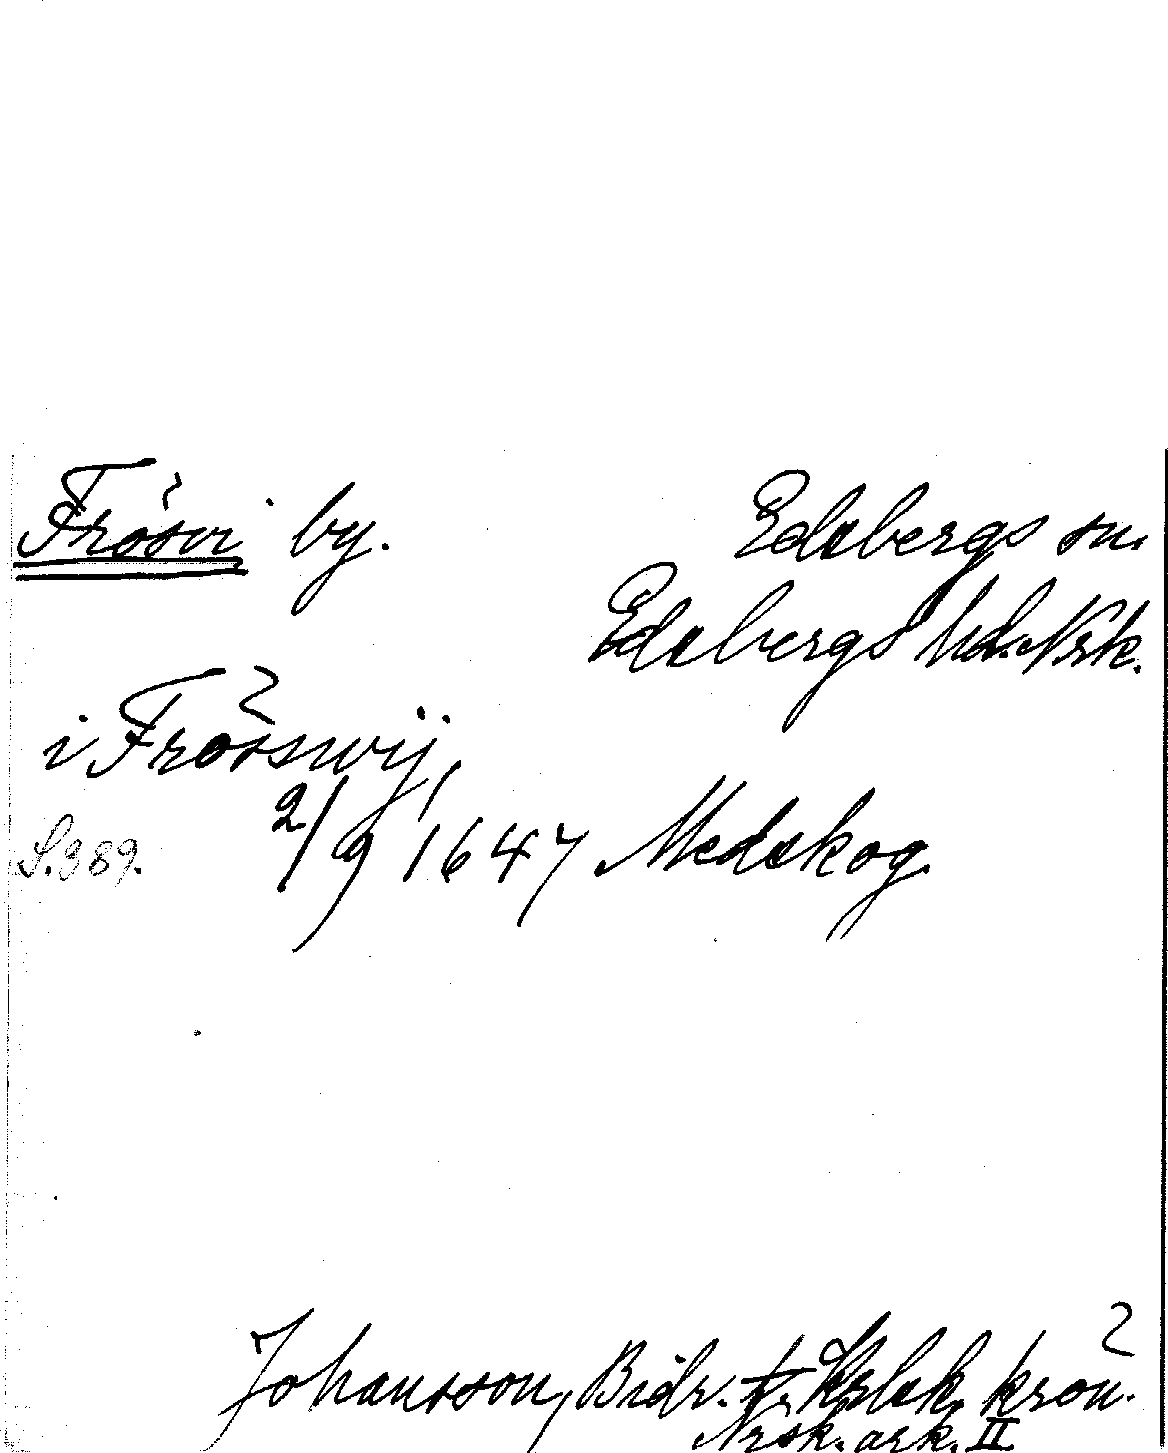 Frösvi by. Edsbergs sn.
Edsbergs hd. Nrk.
i Frösswij,
S. 389. 2/9 1647 Medskog.
Johansson, Bidr. t. Krlsk. krön.
Nrsk. ark. II